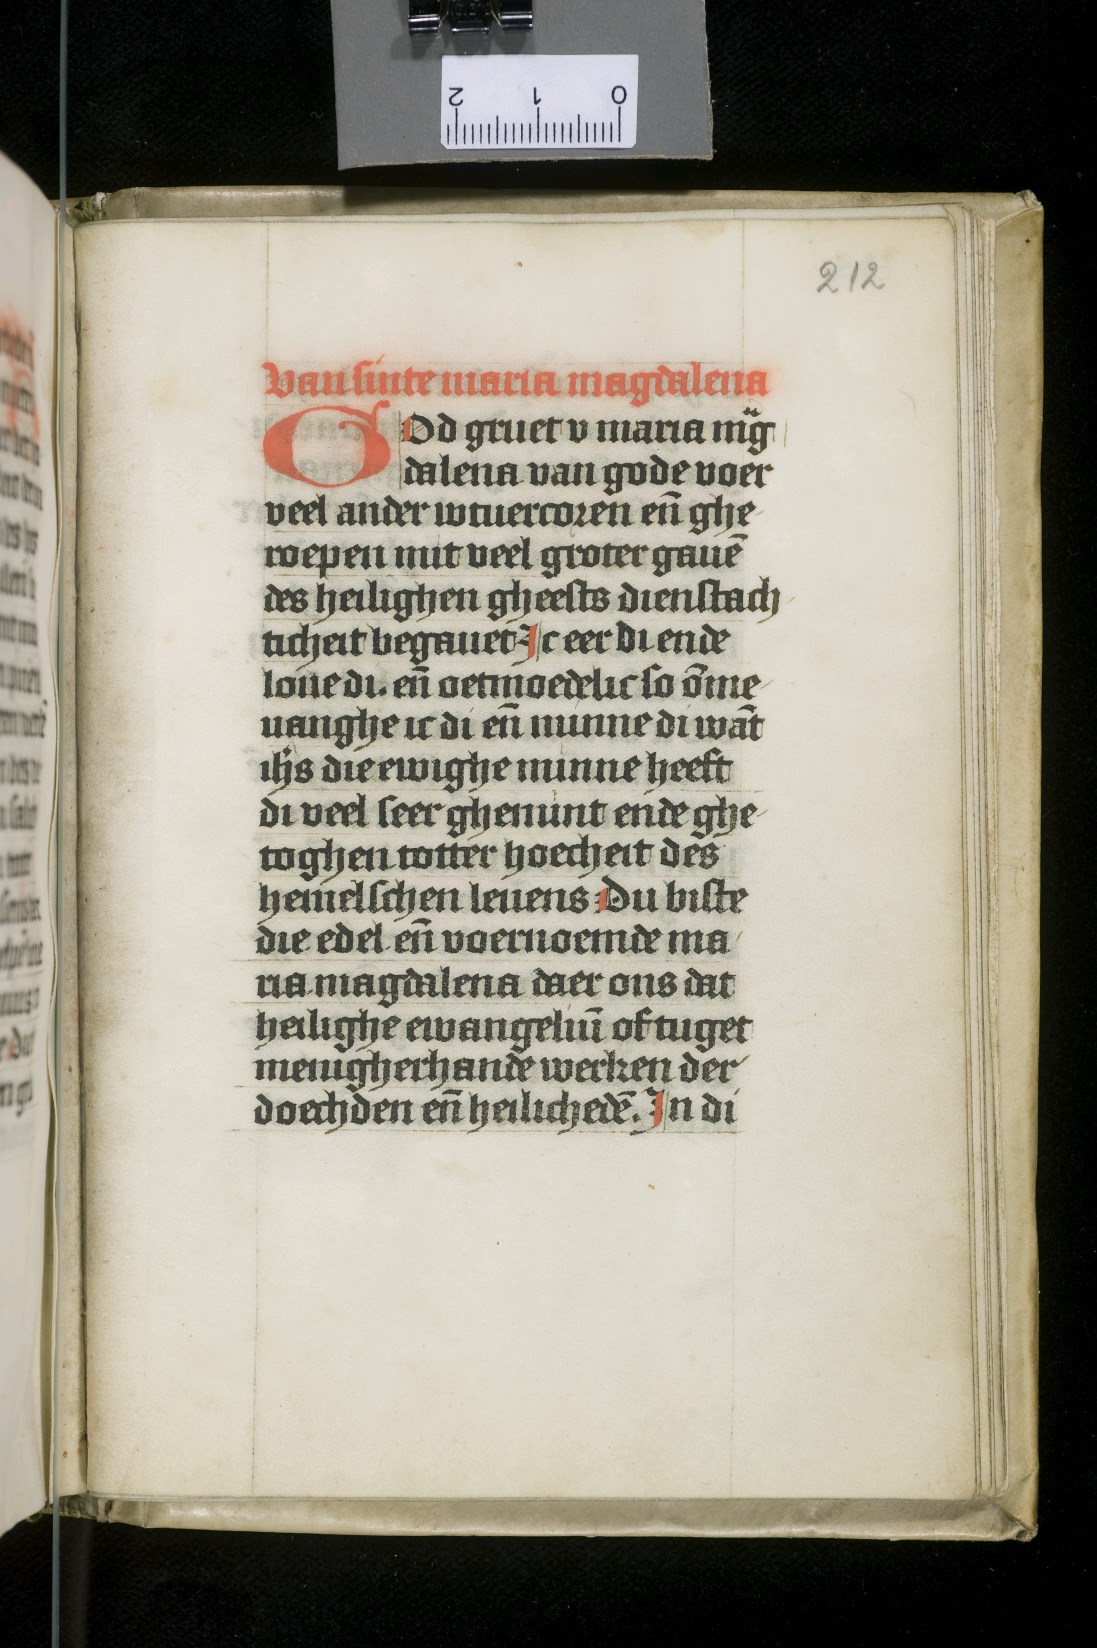 2 1 0
212
Van sinte maria magdalena
GOd gruet v maria mag
dalena van gode voer
veel ander wtuercoren eñ ghe
roepen mit veel groter gauē
des heilighen gheests dienstach
ticheit begauet Ic eer di ende
loue di. eñ oetmoedelic so ōme
uanghe ic di eñ minne di wāt
ihs die ewighe minne heeft
di veel seer ghemint ende ghe
toghen totter hoecheit des
hemelschen leuens Du biste
die edel eñ voernoemde ma
ria magdalena daer ons dat
heilighe ewangeliū of tuget
menigherhande werken der
doechden eñ heilichedē. In di